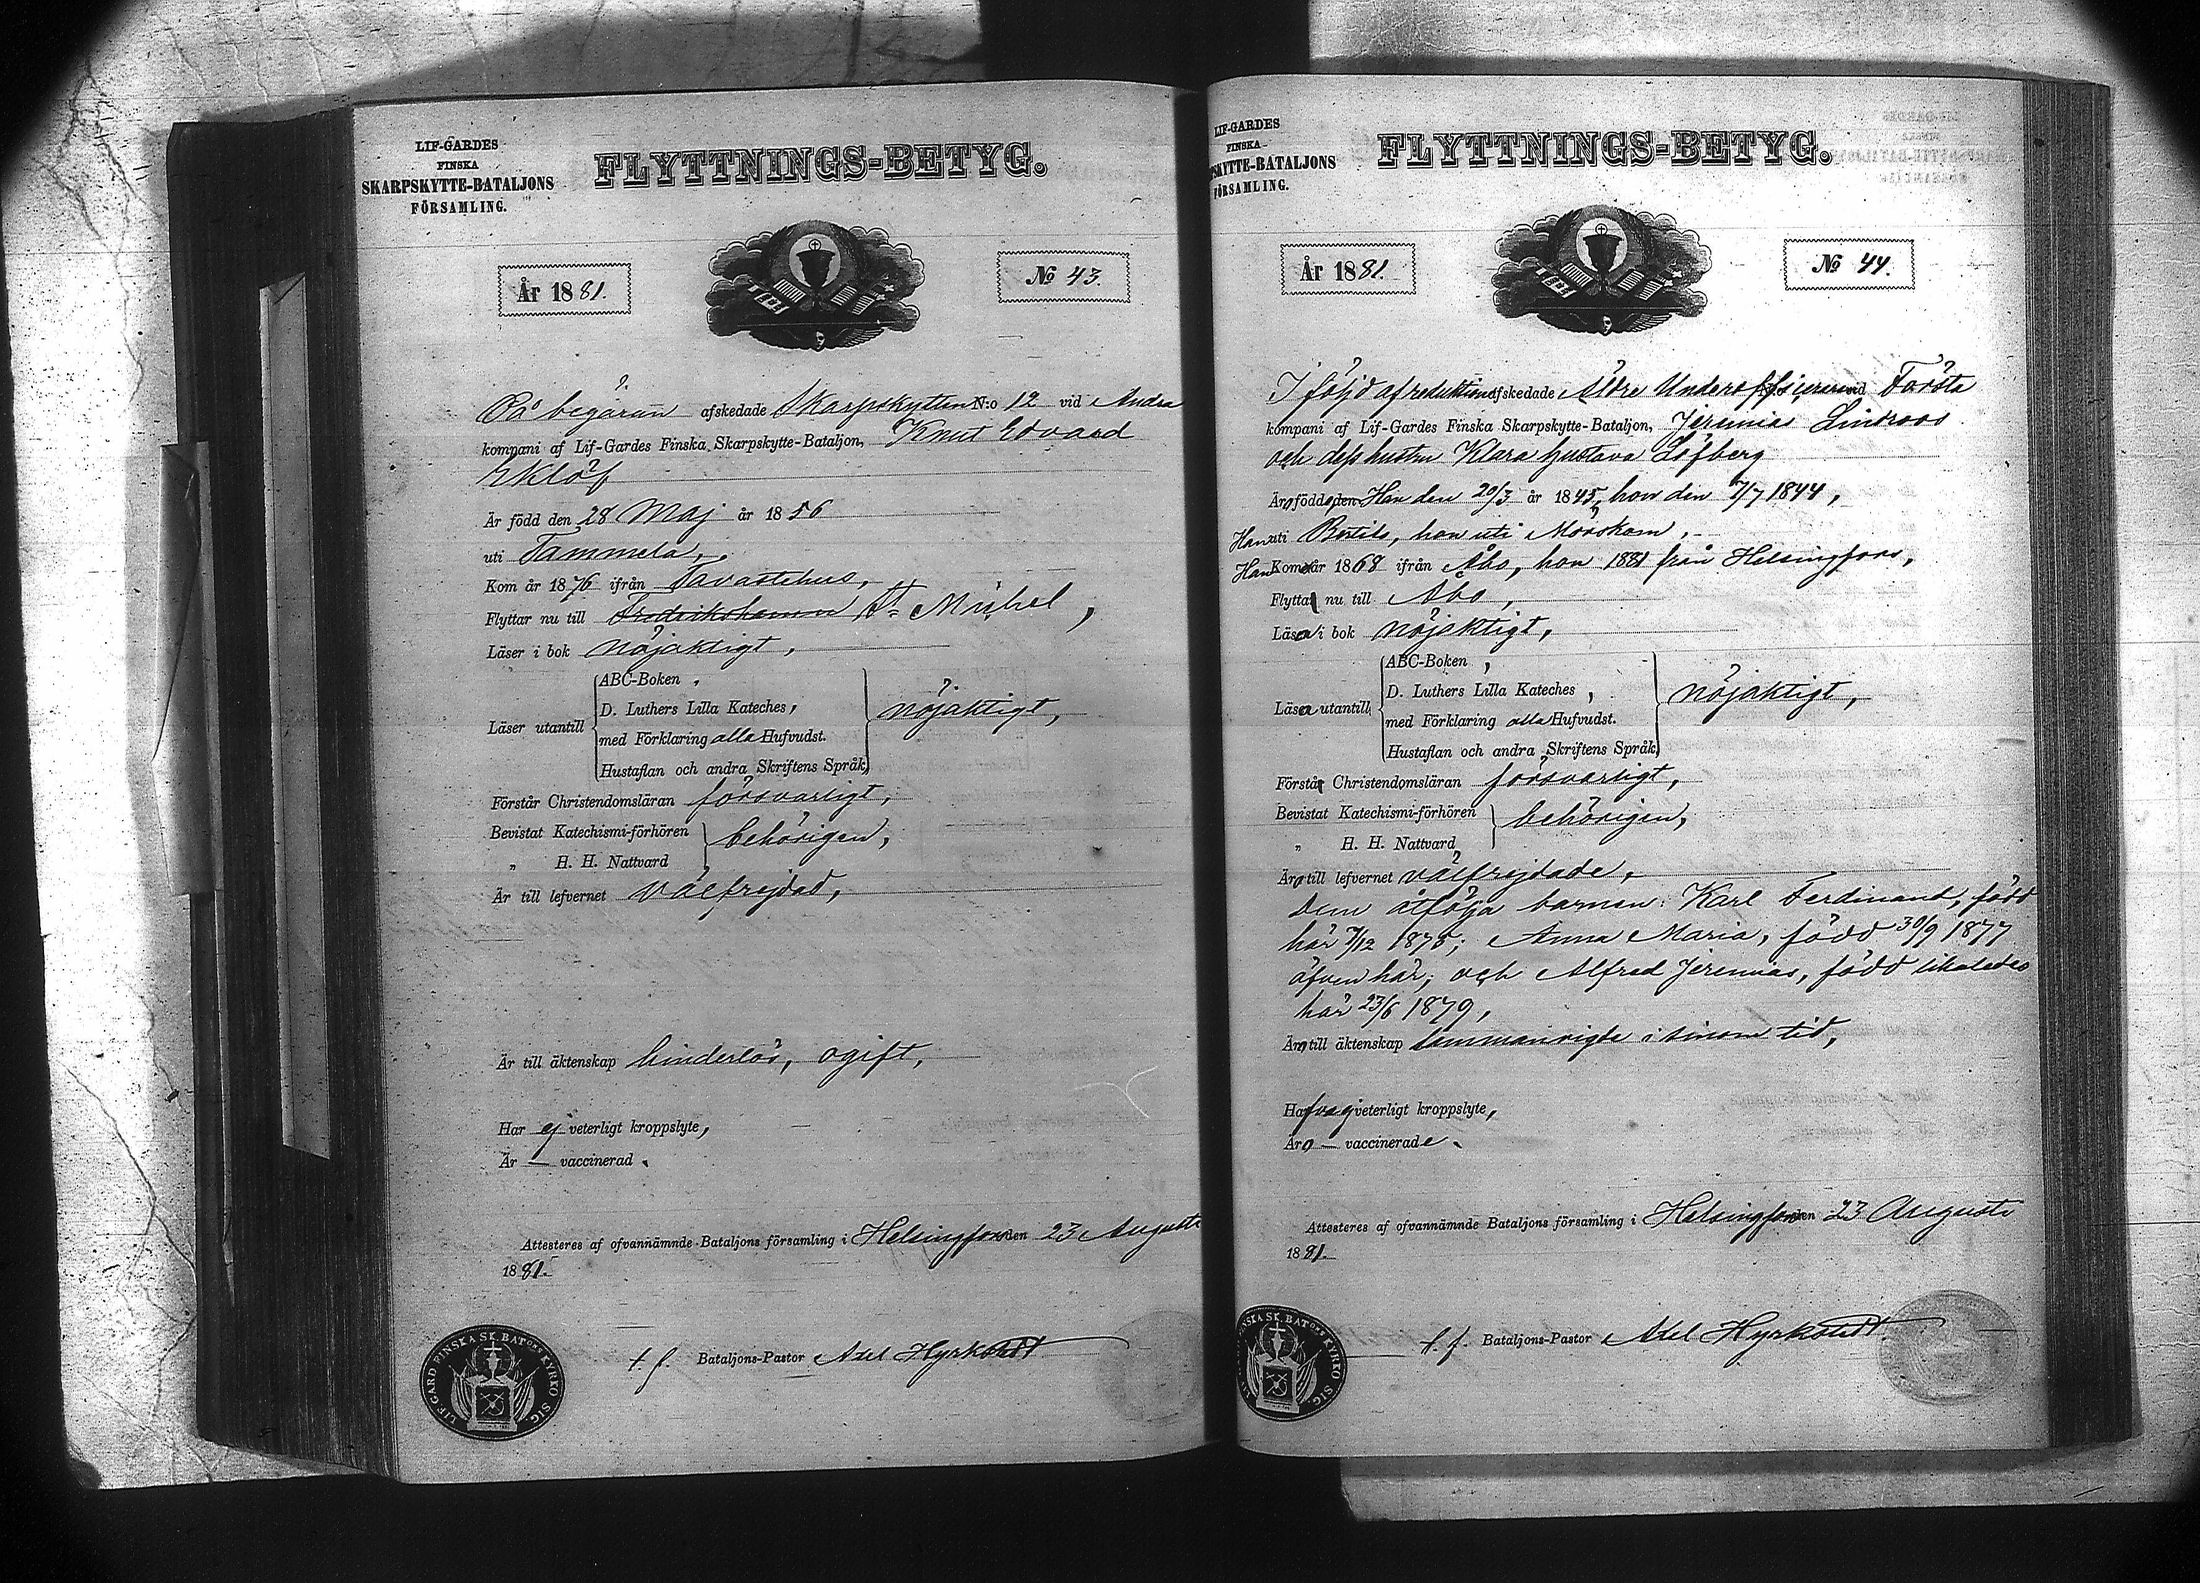 LIF-GARDES
FINSKA
SKARPSKYTTE-BATALJONS
FÖRSAMLING.
FLYTTNINGS-BETYG.
År 1881.
№ 43.
På begäran afskedade Skarpskytten N:o 12 vid Andra
kompani af Lif-Gardes Finska Skarpskytte-Bataljon, Knut Edvard
Eklöf
Är född den 28 Maj år 1856
uti Tammela,
Kom år 1876 ifrån Tavastehus,
Flyttar nu till Fredrikshamn St Michel,
Läser i bok nöjaktigt,
Läser utantill
ABC-Boken,
D. Luthers Lilla Kateches,
med Förklaring alla Hufvudst.
Hustaflan och andra Skriftens Språk
nöjaktigt,
Förstår Christendomsläran försvarligt,
Bevistat Katechismi-förhören
„ H. H. Nattvard
behörigen,
Är till lefvernet välfrejdad,
Är till äktenskap hinderlös, ogift,
Har ej veterligt kroppslyte,
Är — vaccinerad.
Attesteres af ofvannämnde Bataljons församling i Helsingfors den 23 Augusti
1881.
t. f. Bataljons-Pastor Axel Hyrkstedt
LIF.GARD FINSKA SK.BATONS KYRKO SIG.
LIF-GARDES
FINSKA
SKYTTE-BATALJONS
FÖRSAMLING.
FLYTTNINGS-BETYG.
År 1881.
№ 44.
I följd af reduktion afskedade Äldre Underofficeren vid Första
kompani af Lif-Gardes Finska Skarpskytte-Bataljon, Jeremias Lindroos
och dess hustru Klara Gustava Löfberg
Äro födde, den Han den 20/3 år 1845, hon den 7/7 1844,
Han uti Bertila, hon uti Mörskom,
Han Kom år 1868 ifrån Åbo, hon 1881 från Helsingfors,
Flytta nu till Åbo,
Läsa i bok nöjaktigt,
Läsa utantill
ABC-Boken,
D. Luthers Lilla Kateches,
med Förklaring alla Hufvudst.
Hustaflan och andra Skriftens Språk
nöjaktigt,
Förstå Christendomsläran försvarligt,
Bevistat Katechismi-förhören
„ H. H. Nattvard
behörigen,
Äro till lefvernet välfrejdade,
Dem åtfölja barnen: Karl Ferdinand, född
här 7/12 1875; Anna Maria, född 30/9 1877
äfven här; och Alfred Jeremias, född likaledes
här 23/6 1879,
Äro till äktenskap sammanvigde i sinom tid,
Hafva ej veterligt kroppslyte,
Äro — vaccinerade.
Attesteres af ofvannämnde Bataljons församling i Helsingfors den 23 Augusti
1881.
t. f. Bataljons-Pastor Axel Hyrkstedt.
FINSKA SK.BATONS KYRKO SIG.